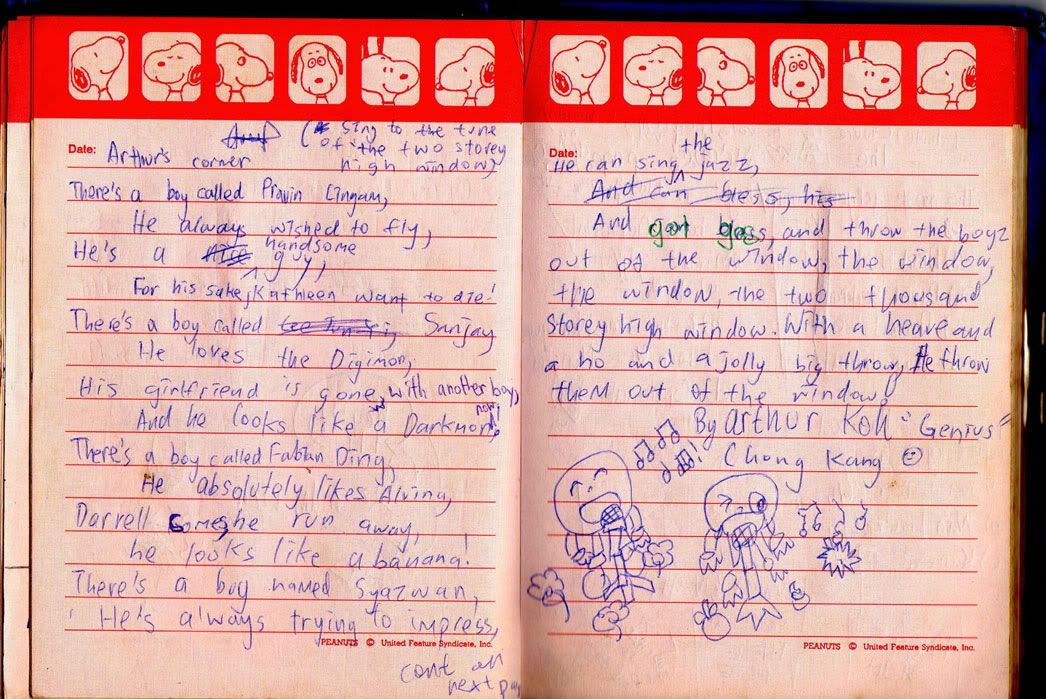 (* sing to the tune
of the two storey
high window)
Date: Arthur's corner
There's a boy called Pravin Lingam,
He always wished to fly,
He's a handsome guy,
For his sake, Kathleen want to die!
There's a boy called Sunjay
He loves the Digimon,
His girlfriend is gone, with another boy,
And he looks like a Darkmon now!
There's a boy called Fabian Ding,
He absolutely likes Alving,
Darrell comes, he run away,
he looks like a banana!
There's a boy named Syazwan,
He's always trying to impress,
PEANUTS © United Feature Syndicate, Inc.
cont on
next
Date:
He can sing the jazz,
And can bless, his
And got gass, and throw the boyz
out of the window, the window,
the window, the two thousand
storey high window. With a heave and
a ho and a jolly big throw, He throw
them out of the window!
By Arthur Koh "Genius"
Chong Kang
PEANUTS © United Feature Syndicate, Inc.